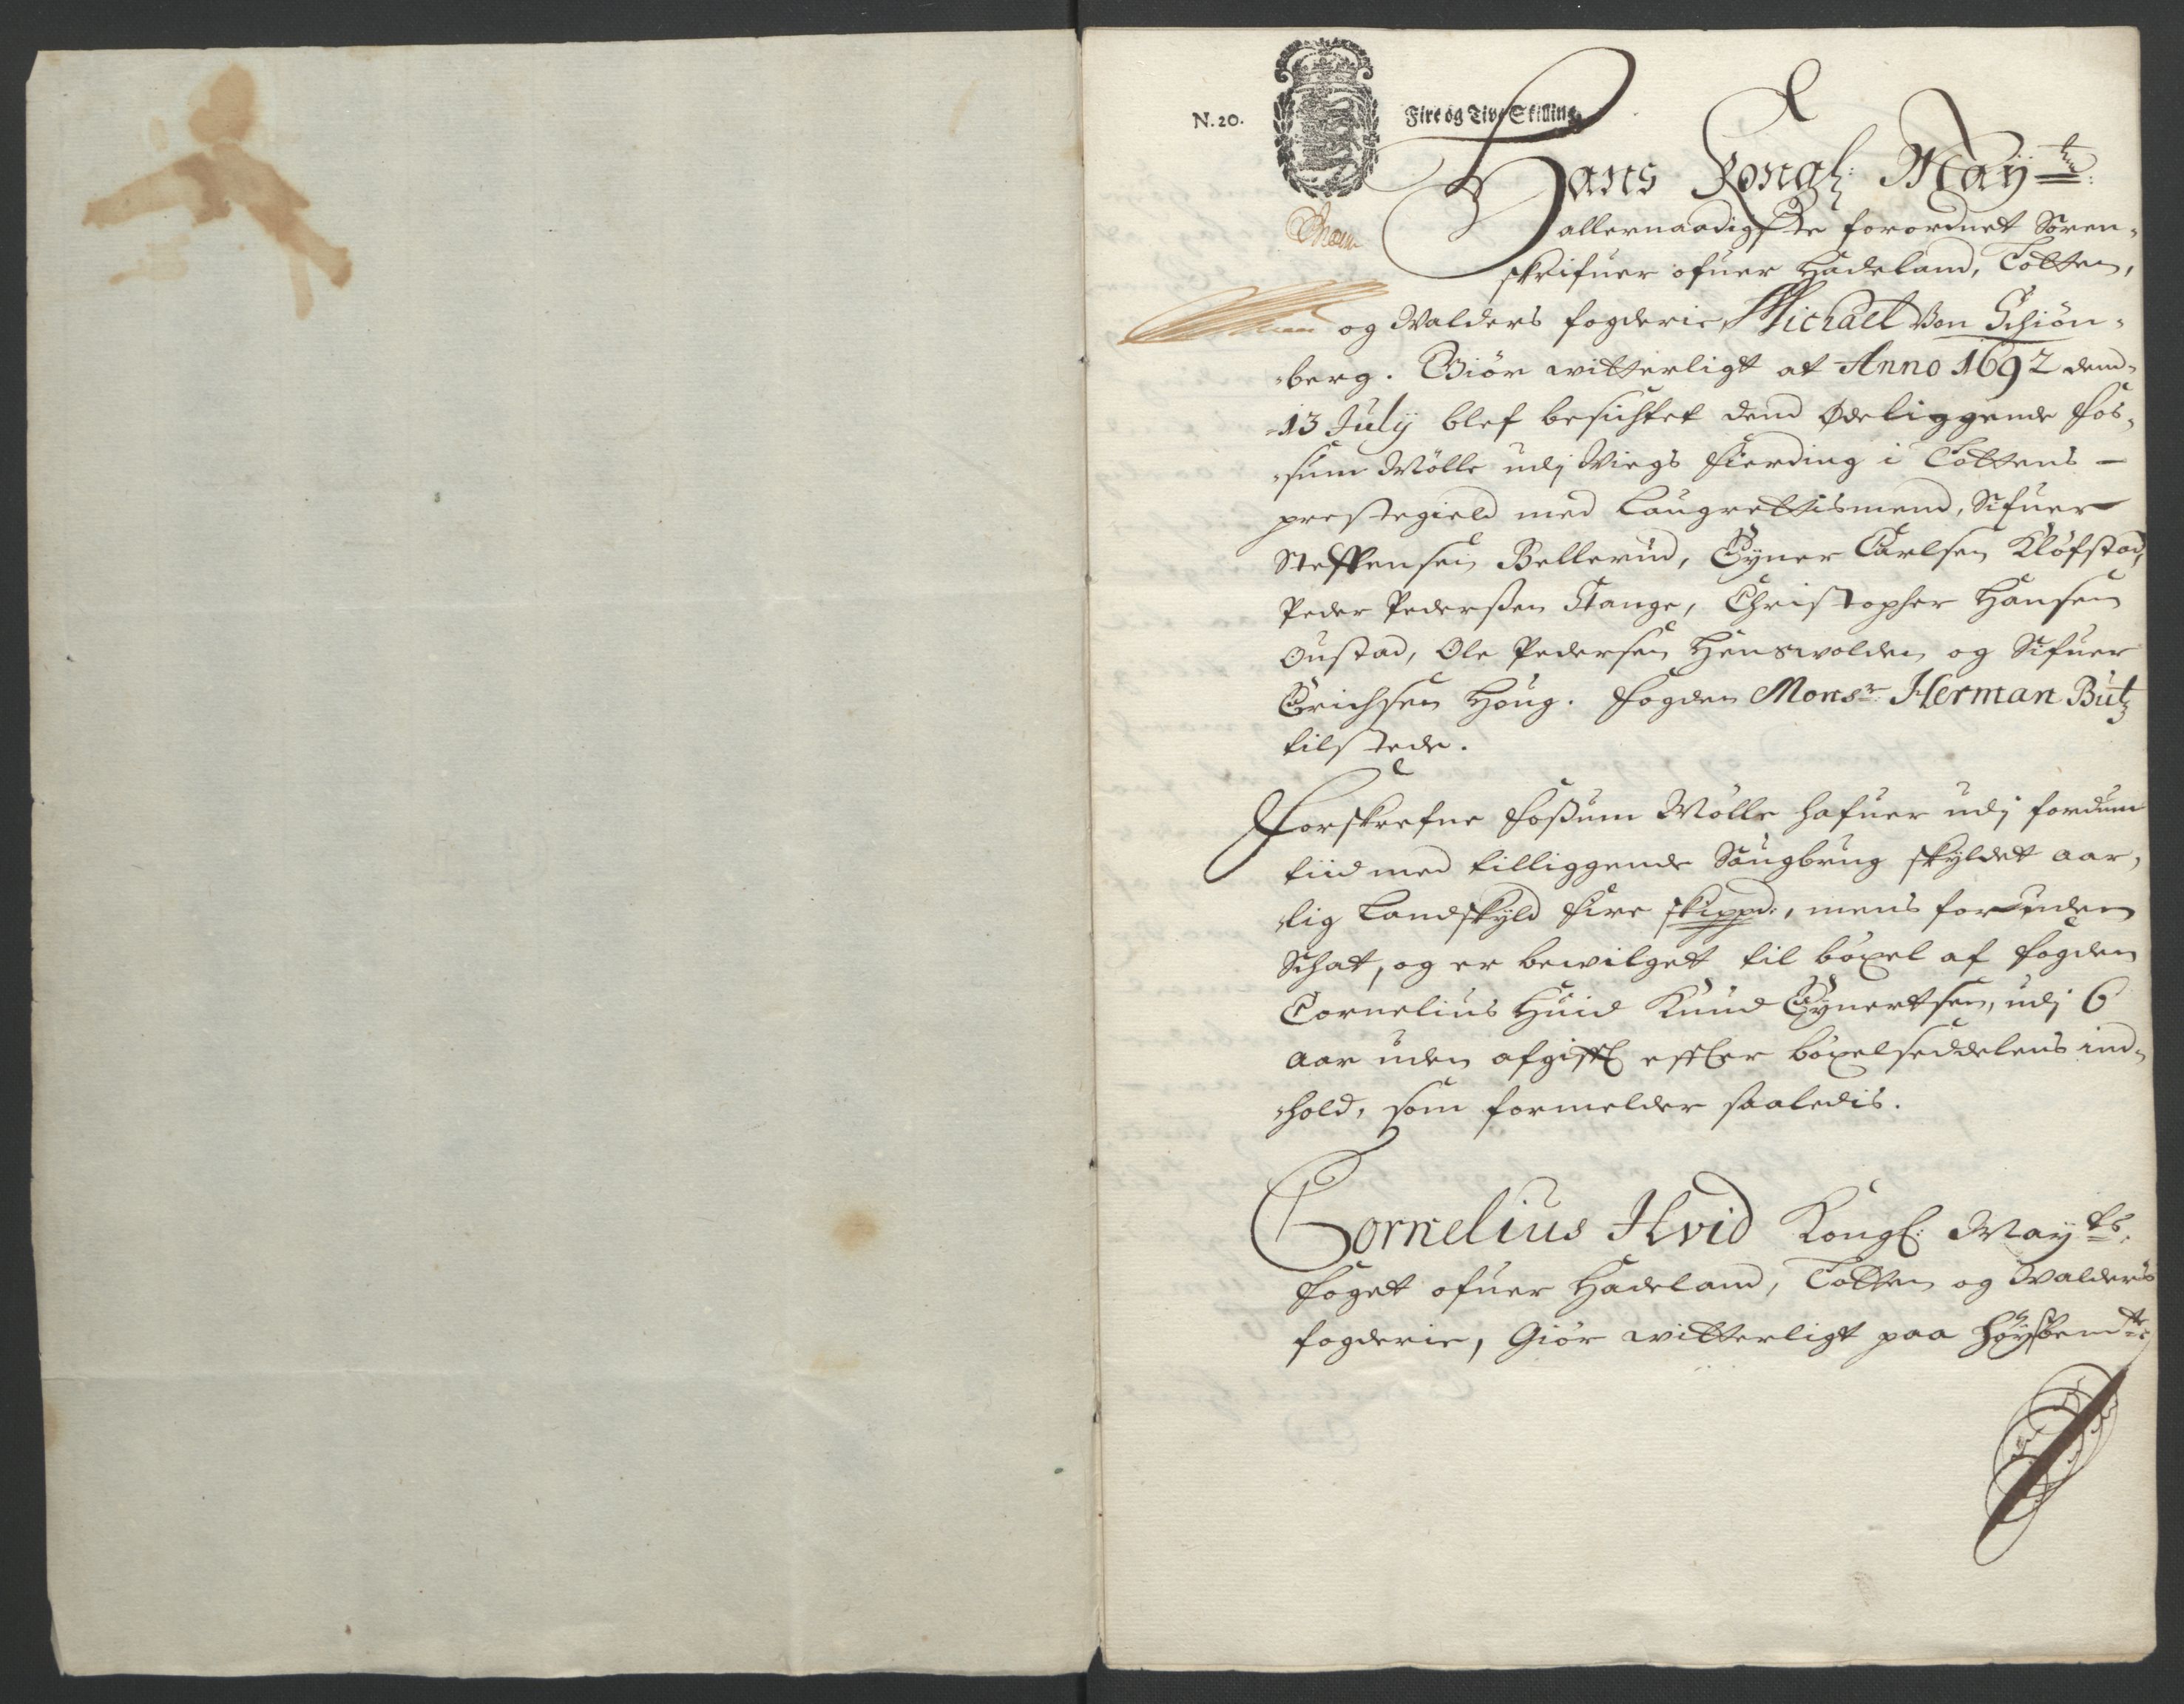 N. 20.
Fire og Tive Skilling
Hans Kongl: Mayts:
allernaadigste forordnet Soren-
skrifuer ofuer Hadeland, Totten,
og Walders fogderie, Michael Von Schiøn-
-berg. Giör witterligt at Anno 1692 dend-
-13 July blef besichtet dend Ødeliggende Fos-
-sum Mølle udj Wiegs Fierding i Tottens -
prestegield med Laugrettismend, Sifuer
Steffensen Bellerud, Eyner Carlsen Kløfstad,
Peder Pederssen Stange, Christopher Hansen
Oustad, Ole Pedersen Henswolden og Sifuer
Erichsen Houg. Fogden Monsr: Herman Bütz
tilstede.
Forskrefne Fossum Mølle hafuer udj fordum
tiid med tilliggende Saugbrug skyldet aar,
-lig Landskyld Fire skippd:, mens for uden
Schat, og er bewilget til böxel af fogden
Cornelius Huid Knud Eynertsen, udj 6
aar uden afgifft effter böxelseddelens ind-
-hold, som formelder saaledis.
Cornelius Hvid Kongl: Mayts:
Foget ofuer Hadeland, Totten og Walders
fogderie, Giör witterligt paa höystbemte: